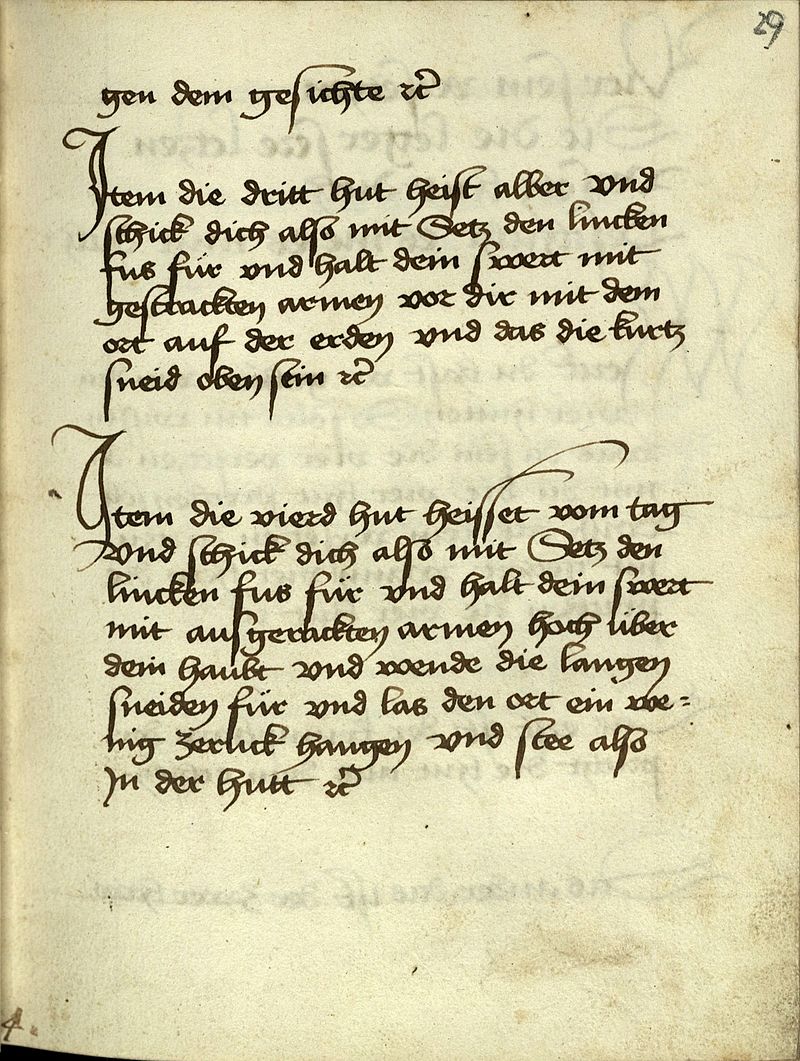 29
gen dem gesichte ⁊c̃
Item die dritt hut heist alber vnd
schick dich also mit Setz den lincken
fus für vnd halt dein swert mit
gestrackten armen vor dir mit dem
ort auf der erden vnd das die kurtz
sneid oben sein ⁊c̃
Item die vierd hut heisset vom tag
vnd schick dich also mit Setz den
lincken fus für vnd halt dein swert
mit ausgerackten armen hoch über
dein haubt vnd wende die langen
sneiden für vnd las den ort ein we=
nig zeruck hangen vnd stee also
In der hutt ⁊c̃
4.